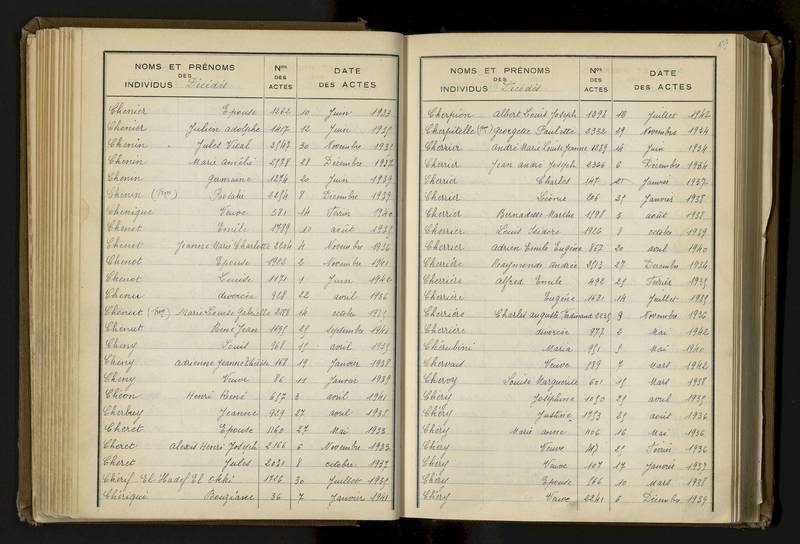 NOMS ET PRÉNOMS DES INDIVIDUS Décédés Nos DES ACTES DATE DES ACTES
Chenier Epouse 1262 10 Juin 1933
Chenier Julien Adolphe 1417 12 Juin 1935
Chenin Jules Vital 2547 30 Novembre 1931
Chenin Marie 2578 28 Décembre 1937
Chenin Germaine 1274 20 Juin 1939
Chenin 2254 8 Décembre 1939
Chenique Veuve 581 14 Février 1940
Chenot Emile 1789 10 août 1935
Chenot Jeanne Marie Charlotte 2204 4 Novembre 1936
Chenot Epouse 1902 2 Novembre 1941
Chenot Louise 1171 1 Juin 1942
Chenu divorcée 928 22 avril 1936
Chenut Marie Louise Gabrielle 2188 14 octobre 1935
Chenut René Jean 1695 25 septembre 1941
Cheny Louis 968 15 avril 1935
Cheny adrienne Jeanne Thérèse 168 19 Janvier 1938
Cheny Veuve 86 11 Janvier 1939
Chéon Henri René 657 3 avril 1941
Cherbuy Jeanne 929 27 avril 1938
Cheret Epouse 1160 27 Mai 1933
Cheret Alexis Henri Joseph 2166 6 Novembre 1933
Cheret Jules 2031 8 octobre 1937
Chérif El Hadef El 1726 30 Juillet 1935
Chérigui Bouziane 36 7 Janvier 1941
NOMS ET PRÉNOMS DES INDIVIDUS Décédés Nos DES ACTES DATE DES ACTES
Cherpion Albert Louis Joseph 1298 10 Juillet 1942
Cherpitelle Georgette Paulette 2332 29 Novembre 1934
Cherrier André Marie Louis Jeanne 1289 14 Juin 1934
Cherrier Jean André Joseph 2366 6 Décembre 1934
Cherrier Charles 147 21 Janvier 1937
Cherrier Léonie 206 25 Janvier 1938
Cherrier Bernadette Marthe 1598 3 août 1938
Cherrier Louis Isidore 1926 8 octobre 1939
Cherrier Adrien Emile Eugène 867 20 avril 1940
Cherrière Raymonde Andrée 2513 27 Décembre 1934
Cherrière Alfred Emile 492 25 Février 1935
Cherrière Eugène 1631 14 Juillet 1935
Cherrière Charles Auguste Ferdinand 2235 9 Novembre 1936
Cherrière divorcée 877 2 Mai 1942
Chérubini Maria 951 5 Mai 1940
Chervais Veuve 539 7 Mars 1942
Chervoy Louise Marguerite 601 15 Mars 1938
Chéry Joséphine 1050 25 avril 1935
Chéry Justine 1753 25 août 1936
Chéry Marie anne 1106 16 Mai 1936
Chéry Veuve 417 25 Février 1936
Chéry Veuve 107 17 Janvier 1937
Chéry Epouse 566 10 Mars 1938
Chéry Veuve 2241 6 Décembre 1939